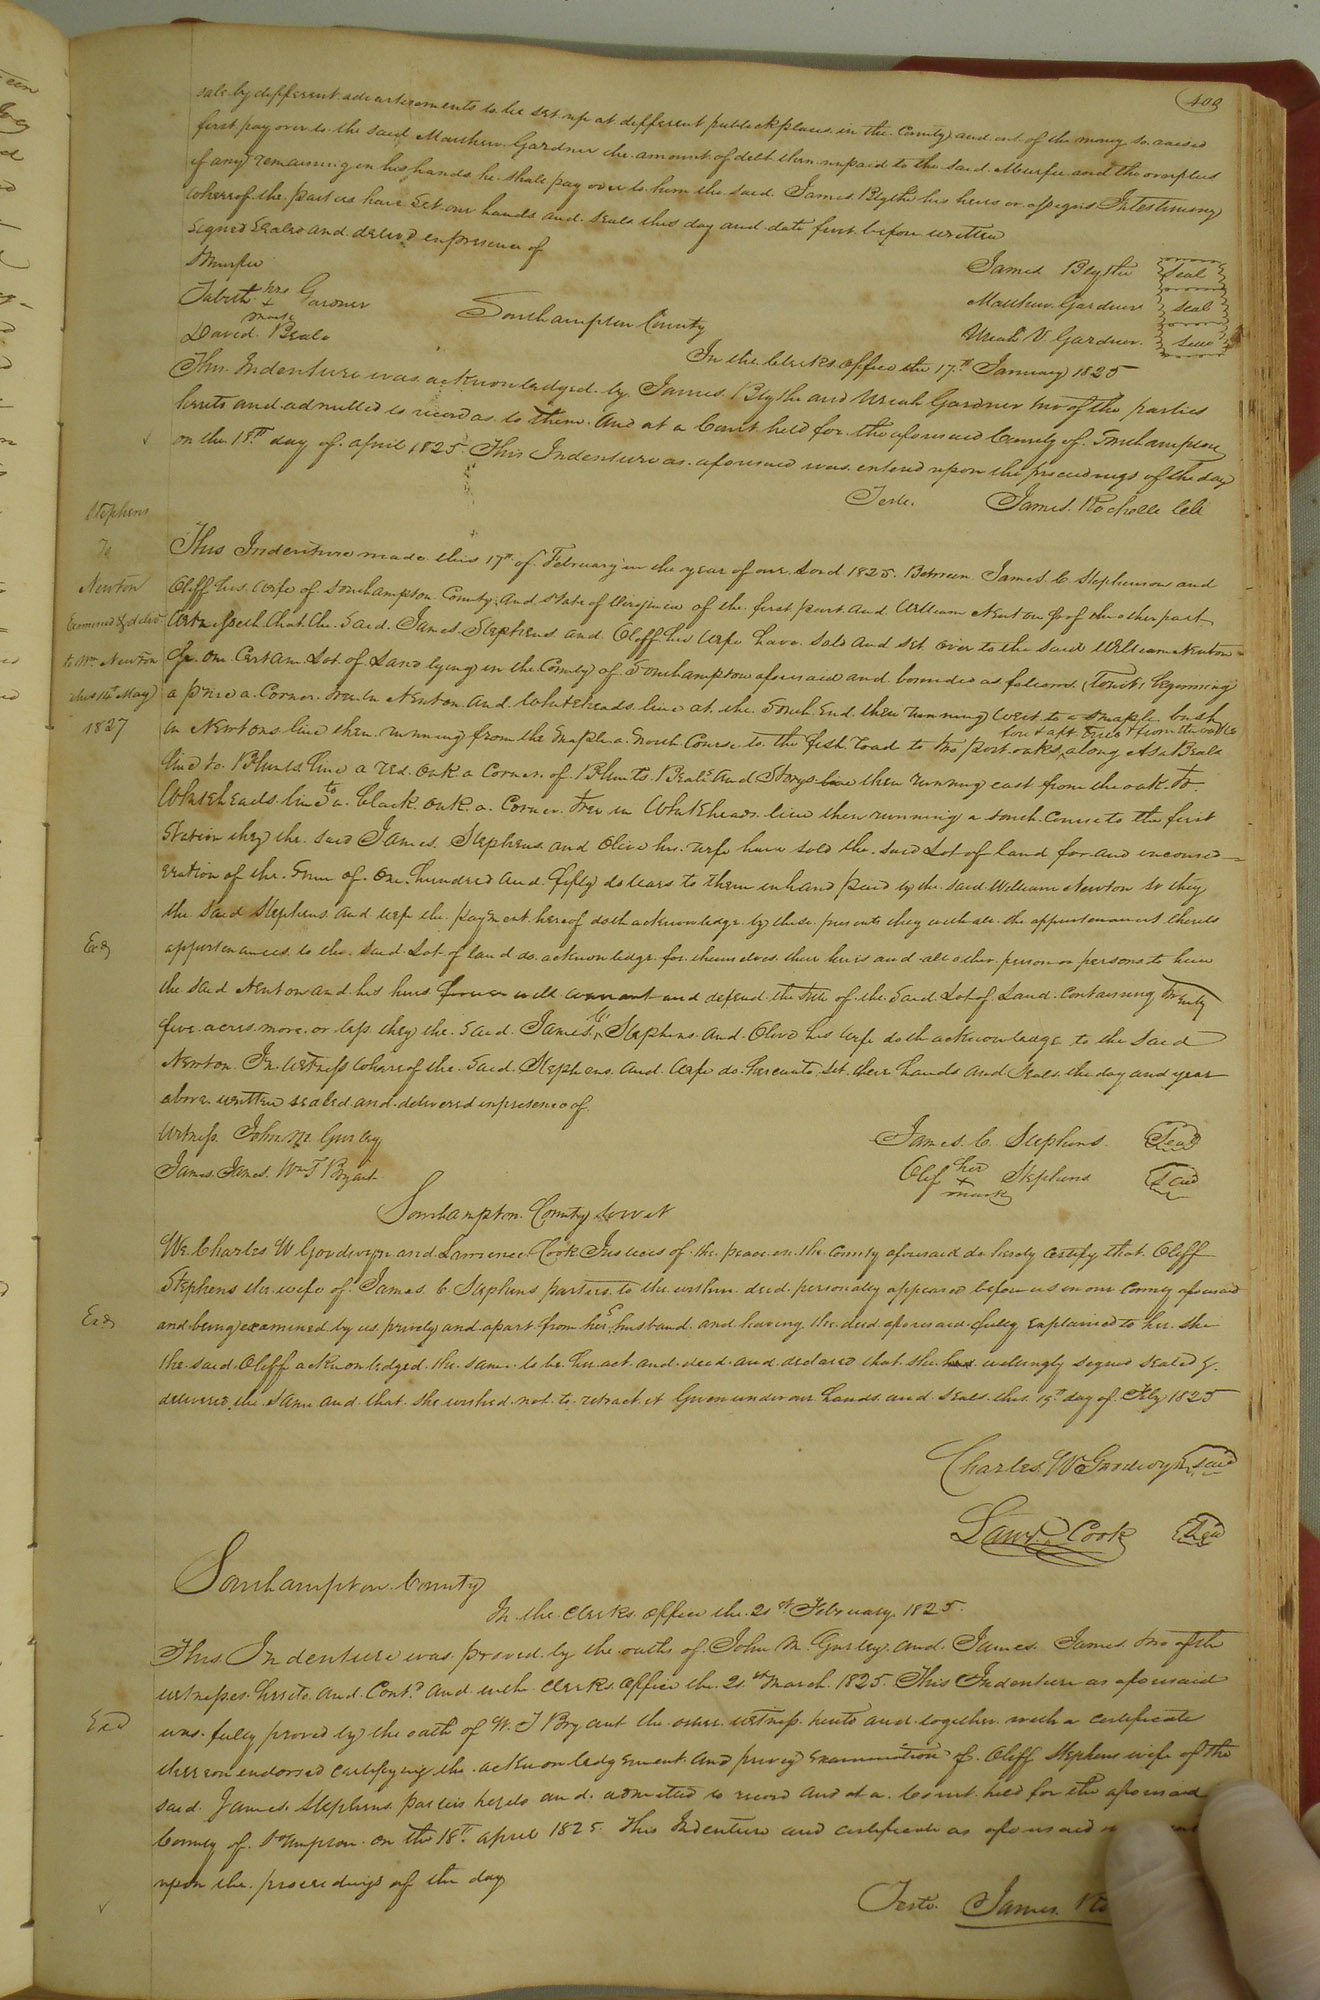 403
sale by different advertisements to be set up at different publick places in the County and out of the money so raised
first pay over to the said Matthew Gardner the amount of debt then unpaid to the said Murfee and the overplus
if any remaining in his hands he shall pay over to him the said James Blythe his heirs or assigns In testimony
whereof the parties have set our hands and seals this day and date first before written
Signed Sealed and deliv'd in presence of
Murfee
James Blythe Seal
Tabitha her Gardner
mark
Matthew Gardner seal
David Beale
Uriah V Gardner seal
Southampton County
In the Clerks office the 17th January 1825
This Indenture was acknowledged by James Blythe and Uriah Gardner two of the parties
hereto and admitted to record as to them. And at a Court held for the aforesaid County of Southampton
on the 18th day of april 1825 This Indenture as aforesaid was entered upon the proceedings of the day
Teste. James Rochelle Clk
Stephens
To
Newton
Examined & deliv'd
to Wm Newton
this 14th May
1827
This Indenture made this 17th of February in the year of our Lord 1825. Between James C Stephenson and
Cliff his wife of Southampton County and State of Virginia of the first part and William Newton Jr of the other part
Witnesseth that the Said James Stephens and Cliff his wife have sold and set over to the said William Newton
Jr one Certain Lot of Land lying in the County of Southampton aforesaid and bounded as follows (towit) beginning
a pine a Corner tree in Newton and Whiteheads line at the South End then running West to a maple bush
in Newtons line then running from the maple a North Course to the fish road to two post oaks along Asa Beals
fore & aft trees & from the oaks
line to Blunts line a red oak a Corner of Blunts Beals and Storys line then running east from the oak to
Whiteheads line to a black oak a Corner tree in Whiteheads line then running a south Course to the first
Station they the said James Stephens and Olive his wife have sold the said Lot of land for and inconsid=
eration of the Sum of One hundred and fifty dollars to them in hand paid by the said William Newton so they
the said Stephens and wife the payment hereof doth acknowledge by these presents they with all the appurtenances thereto
Exd
appurtenances to the said Lot of land do acknowledge for themselves their heirs and all other person or persons to him
the said Newton and his heirs forever will warrant and defend the title of the Said Lot of Land Containing twenty
five acres more or less they the said James C Stephens and Olive his wife doth acknowledge to the said
Newton In witness whereof the said Stephens and wife do hereunto set their hands and Seals the day and year
above written sealed and delivered in presence of
Witness John M Gurley
James C Stephens Seal
James James Wm T Bryant
Clif her Stephens Seal
mark
Southampton County to wit
We Charles W Goodwyn and Lawrence Cook Justices of the peace in the County aforesaid do hereby certify that Cliff
Stephens the wife of James C Stephens parties to the within deed personally appeared before us in our County aforesaid
Exd
and being examined by us privily and apart from her husband and having the deed aforesaid fully explained to her she
the said Cliff acknowledged the same to be her act and deed and declared that she had willingly signed sealed &
delivered the same and that she wished not to retract it Given under our hands and seals this 17th day of Feby 1825
Charles W Goodwyn seal
Lawr. Cook Seal
Southampton County
In the Clerks office the 21st February 1825.
This Indenture was proved by the oaths of John M. Gurley and James James two of the
witnesses hereto and Cont'd and in the Clerks office the 21st March 1825 This Indenture as aforesaid
Exd
was fully proved by the oath of W. T Bryant the other witness hereto and together with a certificate
thereon endorsed certifying the acknowledgement and privy Examination of Cliff Stephens wife of the
said James Stephens parties hereto and admitted to record and at a Court held for the aforesaid
County of S'ampton on the 18th april 1825 This Indenture and certificate as aforesaid
upon the proceedings of the day
Teste James Ro